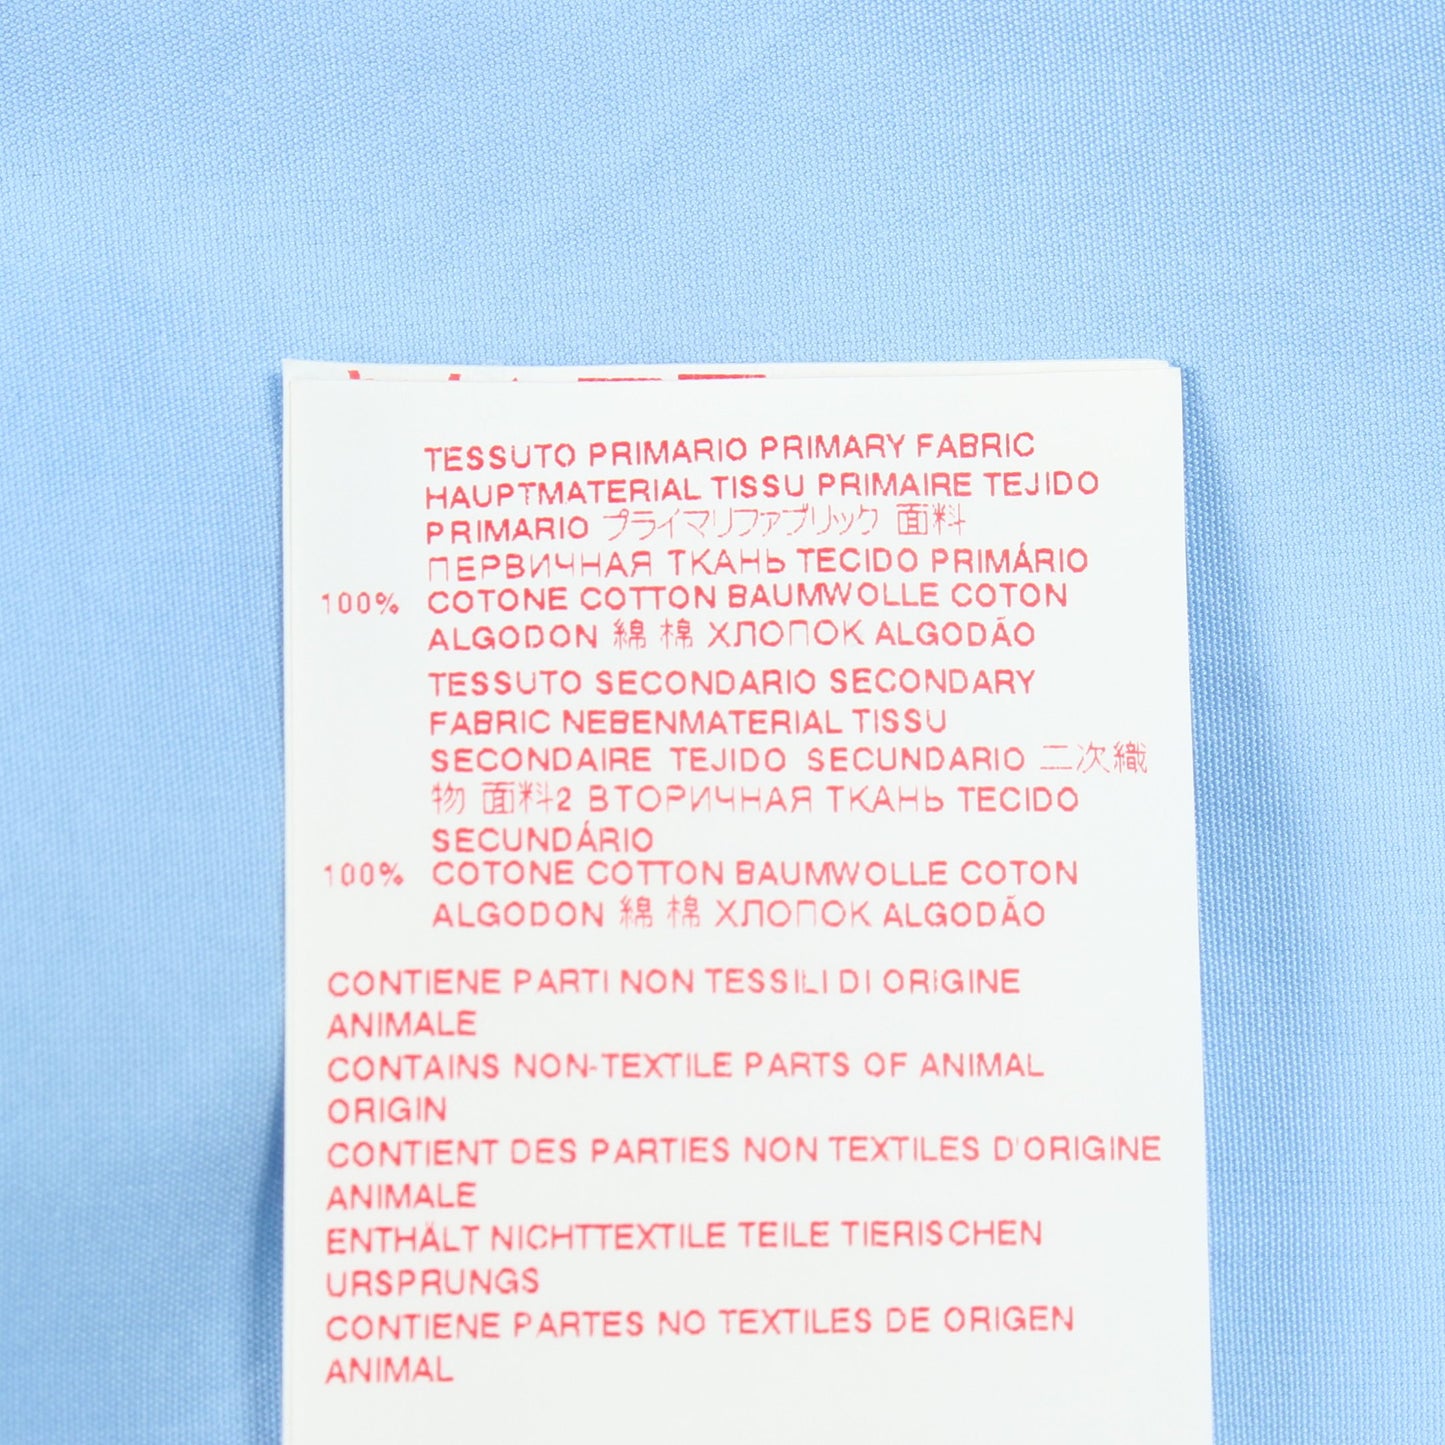 TESSUTO PRIMARIO PRIMARY FABRIC
HAUPTMATERIAL TISSU PRIMAIRE TEJIDO
PRIMARIO プライマリファブリック 面料
ПЕРВИЧНАЯ ТКАНЬ TECIDO PRIMÁRIO
100% COTONE COTTON BAUMWOLLE COTON
ALGODON 綿 棉 ХЛОПОК ALGODÃO
TESSUTO SECONDARIO SECONDARY
FABRIC NEBENMATERIAL TISSU
SECONDAIRE TEJIDO SECUNDARIO 二次織
物 面料2 ВТОРИЧНАЯ ТКАНЬ TECIDO
SECUNDÁRIO
100% COTONE COTTON BAUMWOLLE COTON
ALGODON 綿 棉 ХЛОПОК ALGODÃO
CONTIENE PARTI NON TESSILI DI ORIGINE
ANIMALE
CONTAINS NON-TEXTILE PARTS OF ANIMAL
ORIGIN
CONTIENT DES PARTIES NON TEXTILES D'ORIGINE
ANIMALE
ENTHÄLT NICHTTEXTILE TEILE TIERISCHEN
URSPRUNGS
CONTIENE PARTES NO TEXTILES DE ORIGEN
ANIMAL